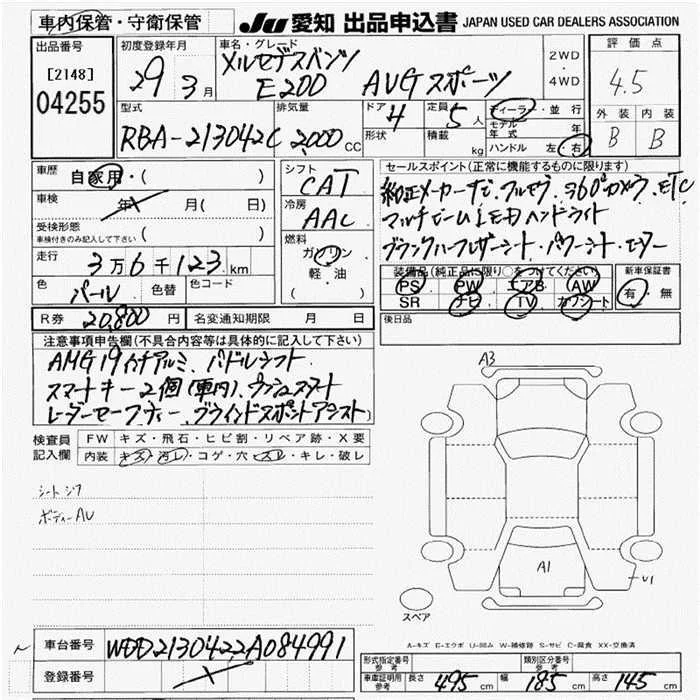 車内保管・守衛保管
JU 愛知 出品申込書 JAPAN USED CAR DEALERS ASSOCIATION
出品番号
[2148]
04255
初度登録年月
29年 3月
車名・グレード
メルセデスベンツ
E200 AVGスポーツ
2WD
・
4WD
評価点
4.5
外装 内装
B B
型式
RBA-213042C
排気量
2,000 CC
ドア 4
形状
定員 5人
積載 kg
ディーラー・並行
モデル年式 年
ハンドル 左 右
車歴 自家用・( )
車検 年 月( 日)
受検形態
車検付きのみ記入して下さい ( )
走行 3万6千123km
色 パール 色替 色コード
シフト CAT
冷房 AAC
燃料 ガソリン
軽・油
( )
セールスポイント(正常に機能するものに限ります)
純正メーカーナビ、フルセグ、360°カメラ、ETC
マルチビームLEDヘッドライト
ブラックハーフレザーシート・パワーシート・ヒーター
装備品(純正品に限り○をつけてください)
PS PW エアB AW
SR ナビ TV カワシート
新車保証書
有・無
R券 20,800円 名変通知期限 月 日
後日品
注意事項申告欄(不具合内容等は具体的に記入して下さい)
AMG19インチアルミ、パドルシフト、
スマートキー2個(車内)、プッシュスタート
レーダーセーフティー、ブラインドスポットアシスト
検査員
記入欄
FW キズ・飛石・ヒビ割・リペア跡・X要
内装 キズ・汚レ・コゲ・穴・スレ・キレ・破レ
シートシワ
ボディーAU
A3
A1
U1
スペア
A-キズ E-エクボ U-凹み W-補修跡 S-サビ C-腐食 XX-交換済
車台番号 WDD2130422A084991
登録番号
形式指定番号
参考
類別区分番号
参考
車庫証明用
参考
長さ 495cm 幅 185cm 高さ 145cm